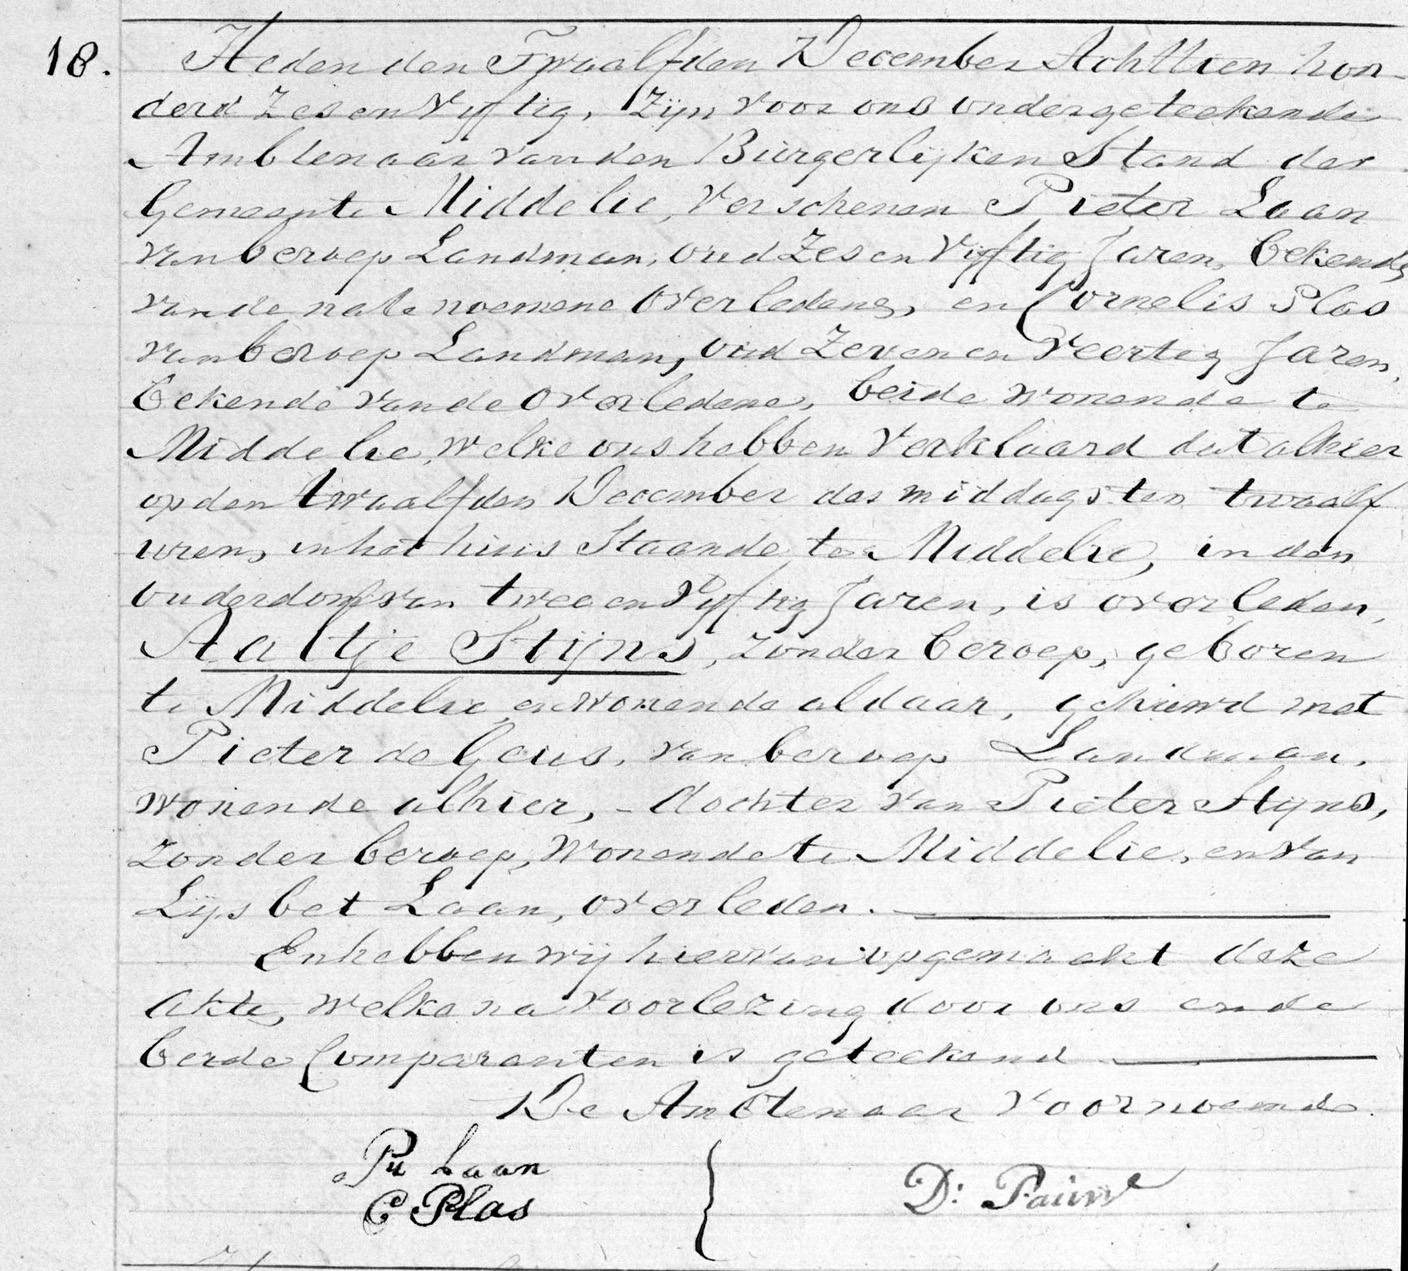 18. Heden den Twaalfden December Achttien hon-
derd Zes en Vijftig, Zijn voor ons ondergeteekende
Ambtenaar van den Burgerlijken Stand der
Gemeente Middelie, Verschenen Pieter Laan
van beroep Landman, oud Zes en Vijftig Jaren, bekende
van de nate noemene Overledene, en Cornelis Plas
van beroep Landman, oud Zeven en Veertig Jaren,
bekende van de Overledene, beide wonende te
Middelie, welke ons hebben Verklaard dat alhier
op den twaalfden December des middags ten twaalf
uren, in het huis Staande te Middelie, in den
Ouderdom van twee en Vijftig Jaren, is overleden,
Aaltje Stijns, zonder beroep, geboren
te Middelie en wonende aldaar, gehuwd met
Pieter de Geus, van beroep Landman,
wonende alhier, - dochter van Pieter Stijns,
zonder beroep, Wonende te Middelie, en van
Lijsbet Laan, overleden.
En hebben wij hiervan opgemaakt deze
Akte, welke na voorlezing door ons en de
beide Comparanten is geteekend
De Ambtenaar Voornoemd.
Pr Laan
C Plas
D: Pauw